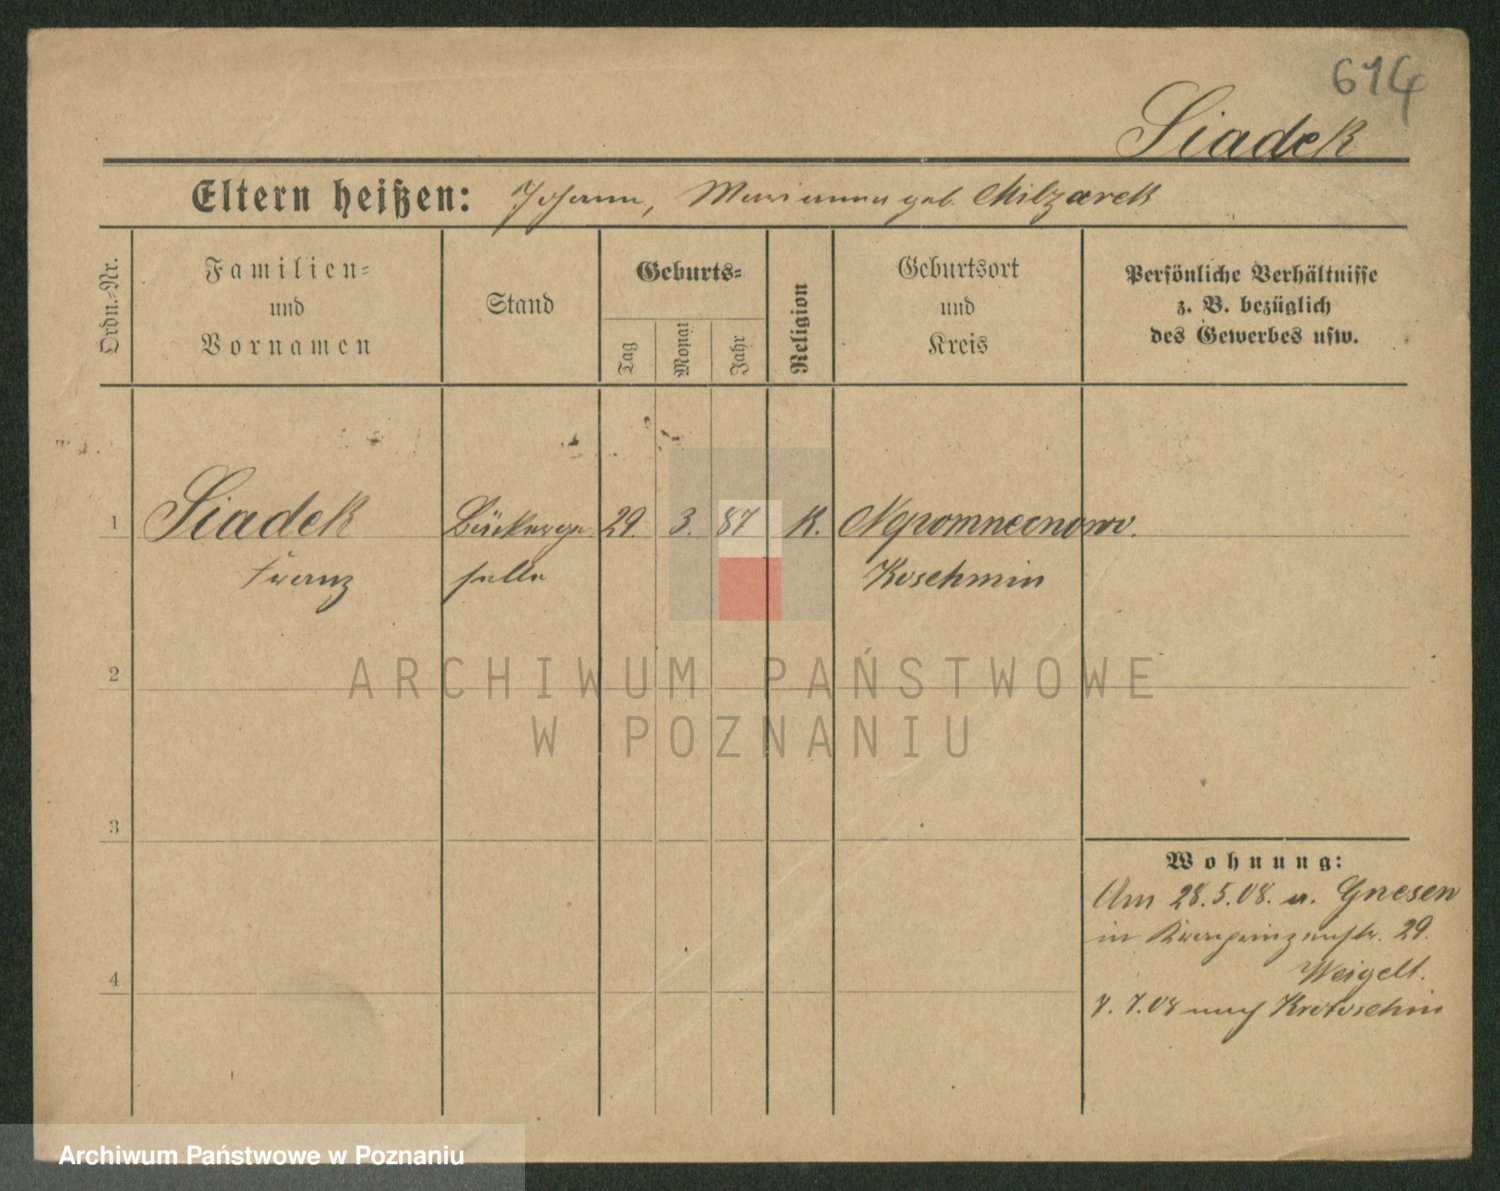 614
Siadek
Eltern heißen: Johann, Marianna geb. Milzarek
Ordn.-Nr.
Familien-
und
Vornamen
Stand
Geburts-
Tag
Monat
Jahr
Religion
Geburtsort
und
Kreis
Persönliche Verhältnisse
z. B. bezüglich
des Gewerbes usw.
1 Siadek Bäckerge 29. 3. 87 K. Nepomucenowo.
Franz selle Koschmin
ARCHIWUM PAŃSTWOWE
W POZNANIU
2
3
4
Wohnung:
Am 28.5.08. v. Gnesen
in Kronprinzenstr. 29.
Weigelt.
7.7.08 nach Krotoschin
Archiwum Państwowe w Poznaniu